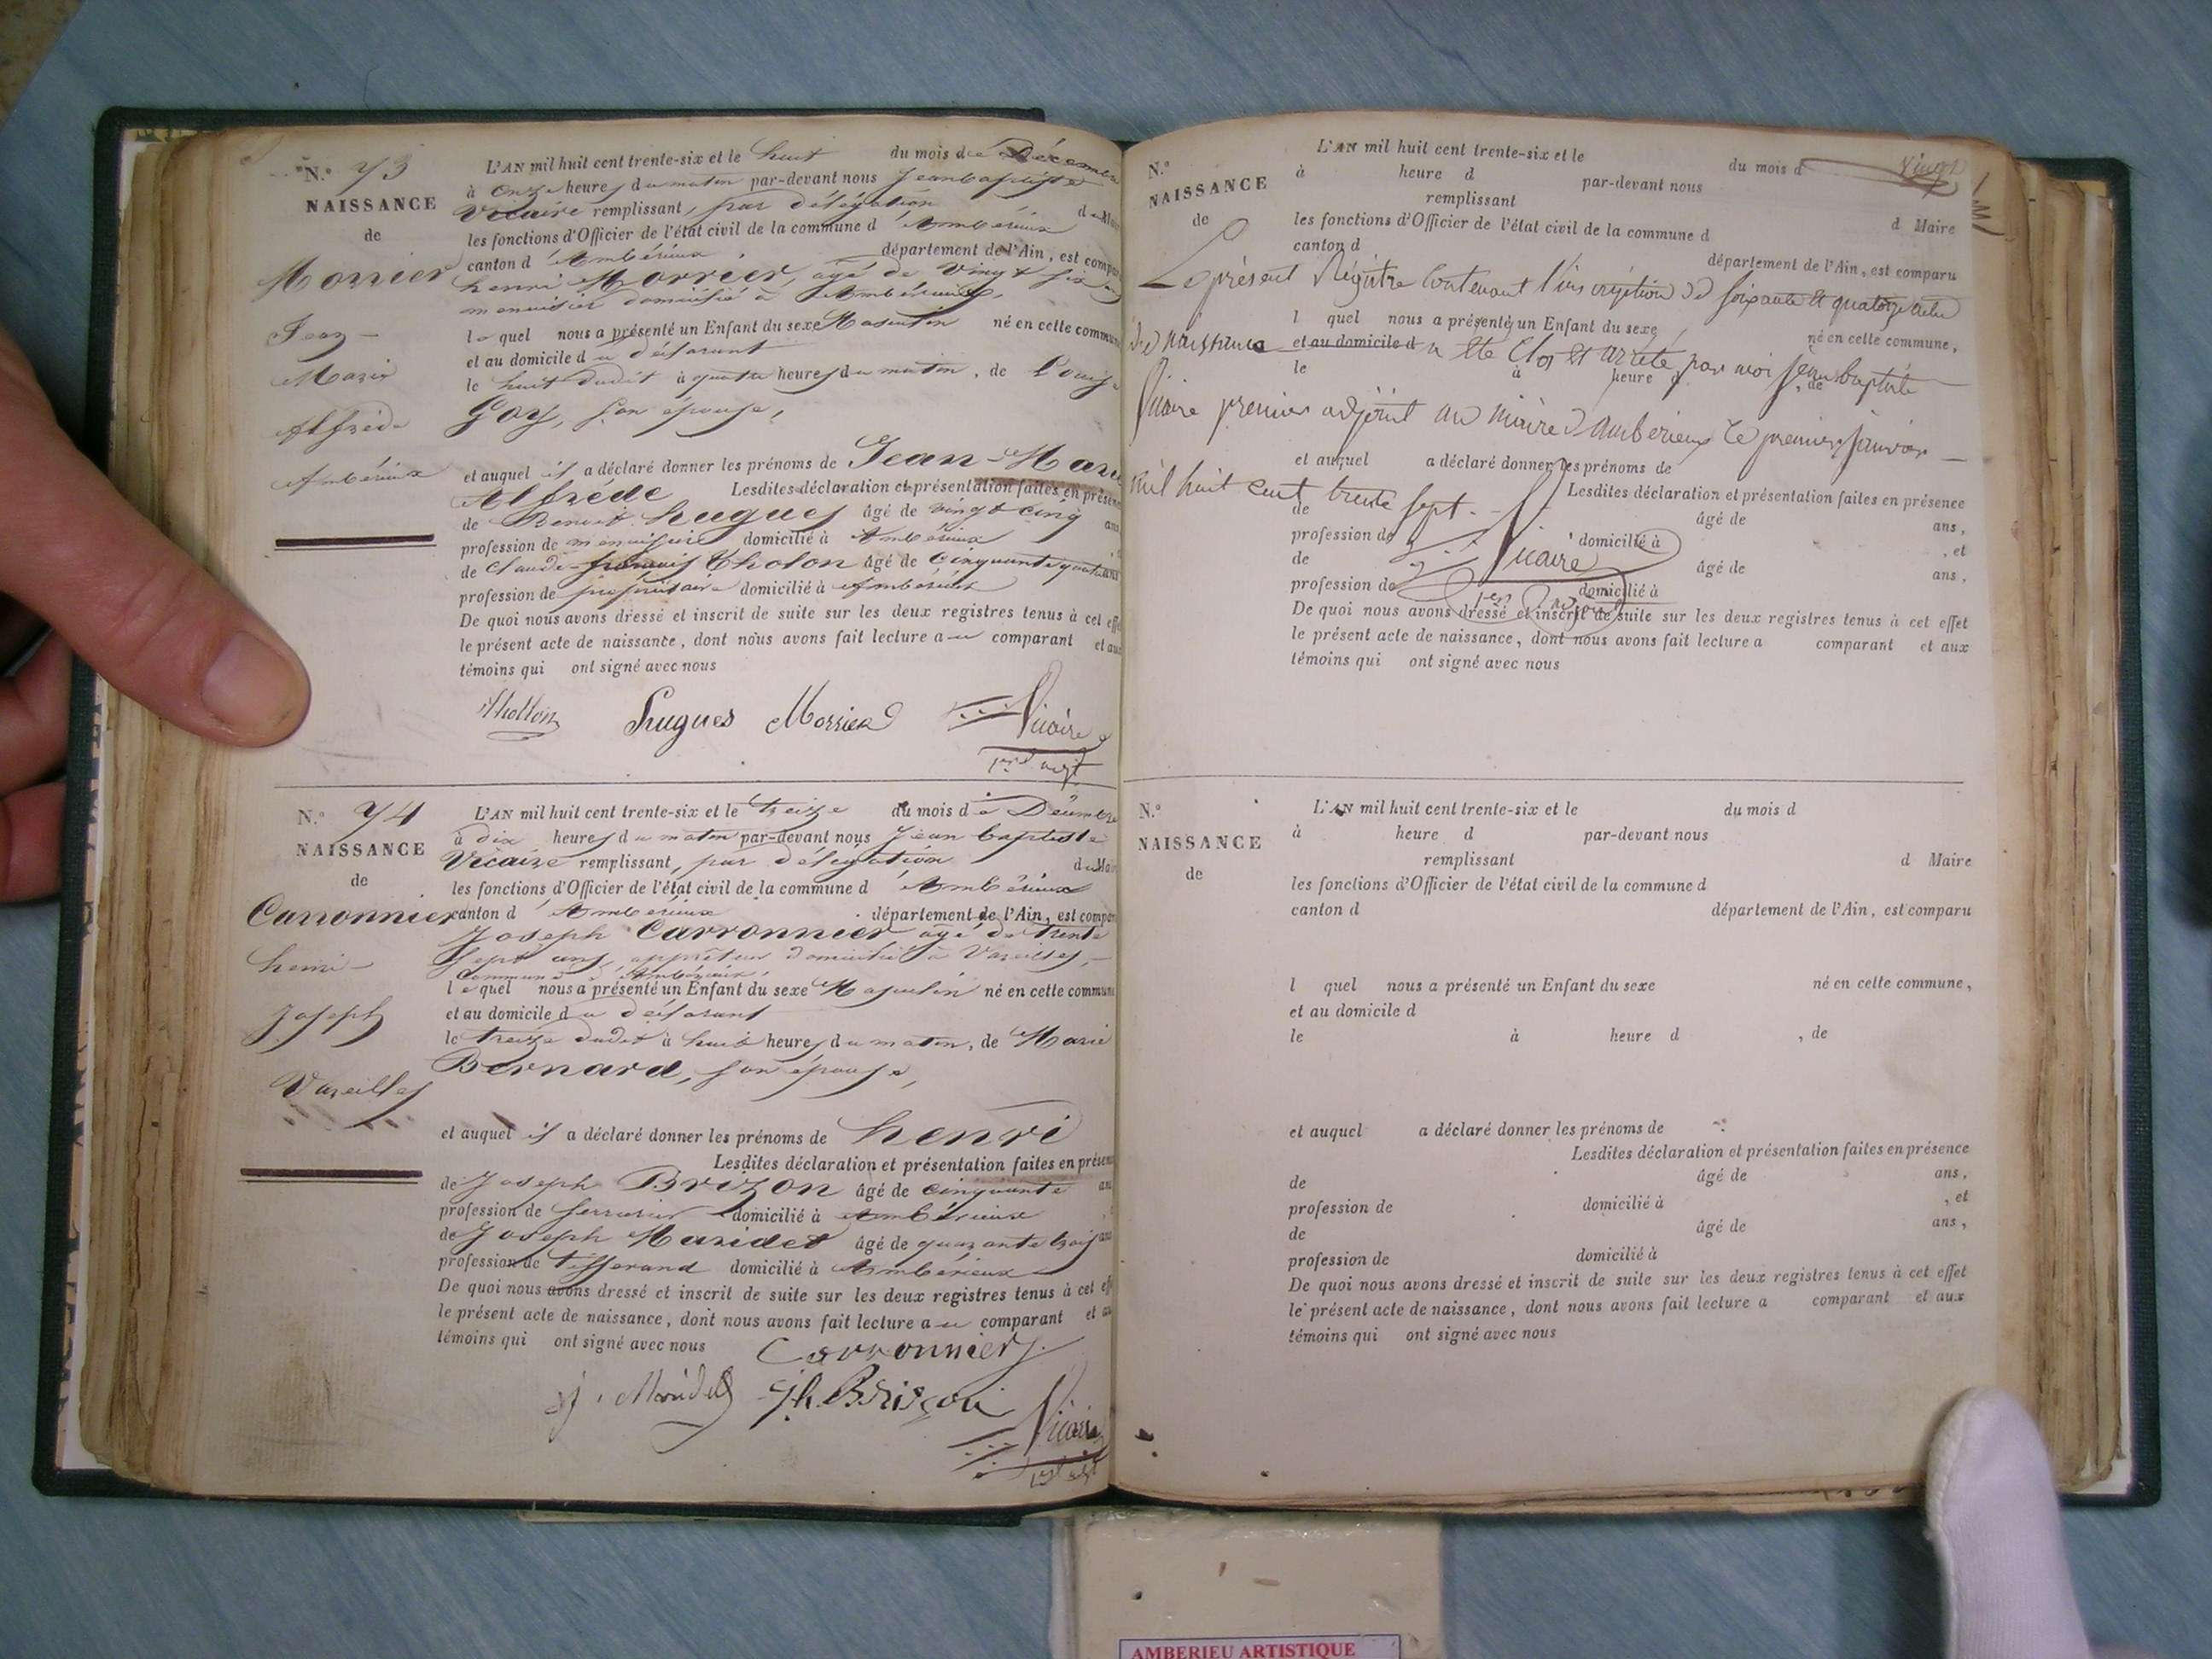 N.° 73
NAISSANCE
de
Morrier
Jean-
Marie
Alfrède
Ambérieux
L'AN mil huit cent trente-six et le huit du mois de Décembre
à onze heures du matin par-devant nous Jean baptiste
Vicaire remplissant, par délégation du
les fonctions d'Officier de l'état civil de la commune d'Ambérieux
canton d'Ambérieux, département de l'Ain, est
henri Morrier, agé de vingt six
menuisier domicilié à Ambérieux,
lequel nous a présenté un Enfant du sexe Masculin né en cette
et au domicile du déclarant
le huit dudit à quatre heures du matin, de Louise
Goy, son épouse,
et auquel il a déclaré donner les prénoms de Jean-Marie
Alfrède Lesdites déclaration et présentation faites en
de Benoit hugues âgé de vingt cinq
profession de menuisier domicilié à Ambérieux
de Claude-françois Tholon âgé de Cinquante quatre ans
profession de propriétaire domicilié à Ambérieux
De quoi nous avons dressé et inscrit de suite sur les deux registres tenus à cet
le présent acte de naissance, dont nous avons fait lecture au comparant et
témoins qui ont signé avec nous
Thollon Hugues Morrier Vicaire
1er adjt
N.° 74
NAISSANCE
de
Carronnier
henri-
Joseph
Vareilles
L'AN mil huit cent trente-six et le treize du mois de Décembre
à dix heures du matin par-devant nous Jean baptiste
Vicaire remplissant, par délégation du
les fonctions d'Officier de l'état civil de la commune d'Ambérieux
canton d'Ambérieux département de l'Ain, est
Joseph Carronnier agé de trente
sept ans, domicilié à Vareilles,
commune d'Ambérieux,
lequel nous a présenté un Enfant du sexe Masculin né en cette commune
et au domicile du déclarant
le treize dudit à huit heures du matin, de Marie
Bernard, son épouse,
et auquel il a déclaré donner les prénoms de henri
Lesdites déclaration et présentation faites en
de Joseph Brizon âgé de cinquante
profession de serrurier domicilié à Ambérieux
de Joseph Maridet âgé de quarante trois ans
profession de tisserand domicilié à Ambérieux
De quoi nous avons dressé et inscrit de suite sur les deux registres tenus à cet
le présent acte de naissance, dont nous avons fait lecture au comparant et
témoins qui ont signé avec nous Carronnier
J. Maridet Jh. Brison Vicaire
1er adjt
Vingt
N.°
NAISSANCE
de
L'AN mil huit cent trente-six et le du mois d
à heure d par-devant nous
remplissant d Maire
les fonctions d'Officier de l'état civil de la commune d
canton d département de l'Ain, est comparu
Le présent Régistre Contenant l'inscription de soixante et quatorze actes
l quel nous a présenté un Enfant du sexe né en cette commune,
de naissance a été Clos et arrêté par moi Jean baptiste
et au domicile d
le à heure d , de
Vicaire premier adjoint au maire d'amberieux le premier janvier
et auquel a déclaré donner les prénoms de
mil huit cent trente sept.
Lesdites déclaration et présentation faites en présence
de âgé de ans,
profession de domicilié à , et
Vicaire
de âgé de ans,
profession de domicilié à
1er adjoint
De quoi nous avons dressé et inscrit de suite sur les deux registres tenus à cet effet
le présent acte de naissance, dont nous avons fait lecture a comparant et aux
témoins qui ont signé avec nous
N.°
NAISSANCE
de
L'AN mil huit cent trente-six et le du mois d
à heure d par-devant nous
remplissant d Maire
les fonctions d'Officier de l'état civil de la commune d
canton d département de l'Ain, est comparu
l quel nous a présenté un Enfant du sexe né en cette commune,
et au domicile d
le à heure d , de
et auquel a déclaré donner les prénoms de
Lesdites déclaration et présentation faites en présence
de âgé de ans,
profession de domicilié à , et
de âgé de ans,
profession de domicilié à
De quoi nous avons dressé et inscrit de suite sur les deux registres tenus à cet effet
le présent acte de naissance, dont nous avons fait lecture a comparant et aux
témoins qui ont signé avec nous
AMBERIEU ARTISTIQUE